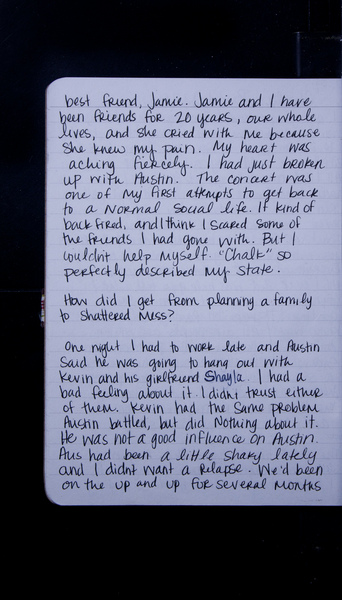 best friend, Jamie. Jamie and I have
been friends for 20 years, our whole
lives, and she cried with me because
she knew my pain. My heart was
aching fiercely. I had just broken
up with Austin. The concert was
one of my first attempts to get back
to a normal social life. It kind of
backfired, and I think I scared some of
the friends I had gone with. But I
couldn't help myself. "Chalk" so
perfectly described my state.
How did I get from planning a family
to shattered mess?
One night I had to work late and Austin
said he was going to hang out with
Kevin and his girlfriend Shayla. I had a
bad feeling about it. I didnt trust either
of them. Kevin had the same problem
Austin battled, but did nothing about it.
He was not a good influence on Austin.
Aus had been a little shaky lately
and I didnt want a relapse. We'd been
on the up and up for several months